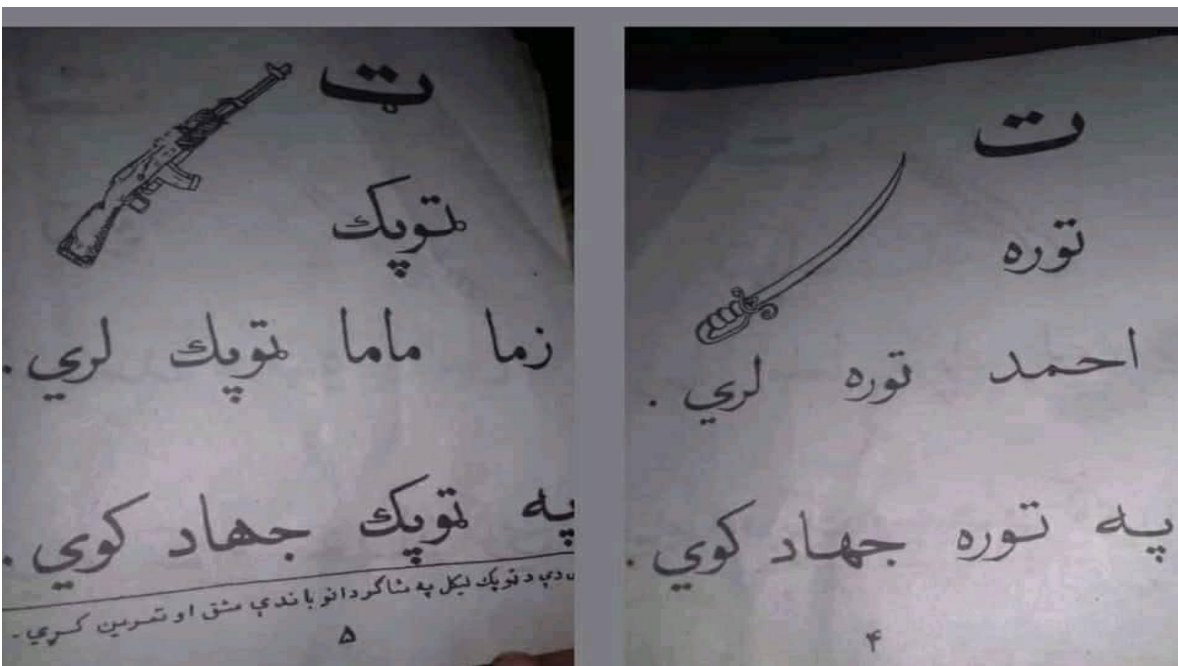 ت
توره
احمد توره لري .
په توره جهاد كوي .
۴
ټ
ټوپك
زما ماما ټوپك لري .
په ټوپك جهاد كوي .
دې د ټوپك ليكل په شاگردانو باندې مشق او تمرين كړي .
۵